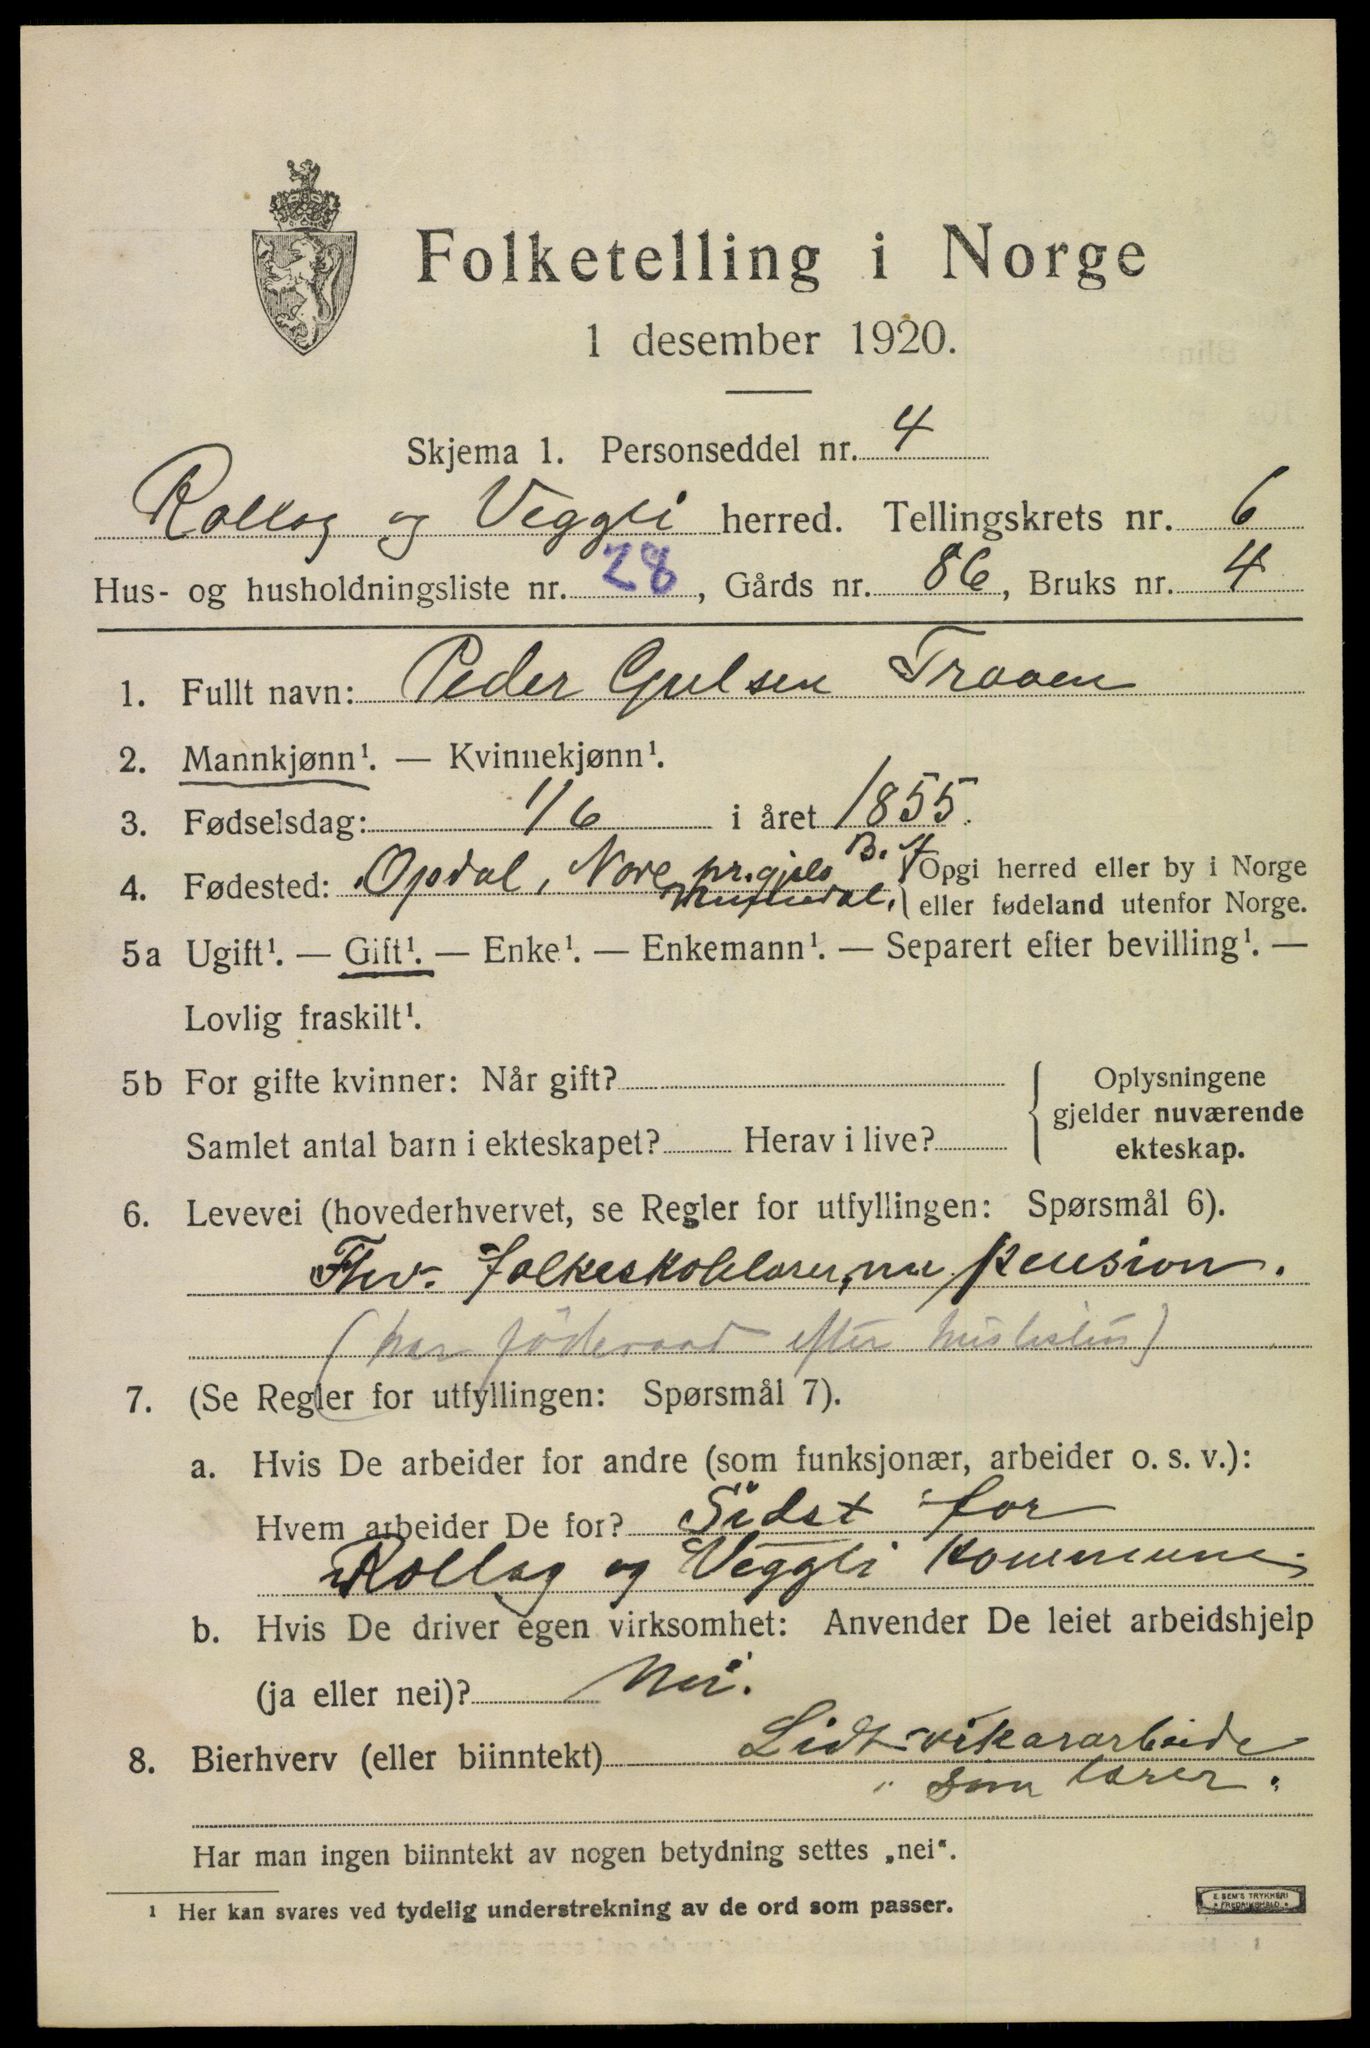 Folketelling i Norge
1 desember 1920.
Skjema 1. Personseddel nr. 4
Rollag og Veggli herred. Tellingskrets nr. 6
Hus- og husholdningsliste nr. 28, Gårds nr. 86, Bruks nr. 4
1. Fullt navn: Peder Gulsen Traaen
2. Mannkjønn¹. — Kvinnekjønn¹.
3. Fødselsdag: 1/6 i året 1855.
4. Fødested: Opdal, Nore pr.gjeld B. A Opgi herred eller by i Norge
Numedal, eller fødeland utenfor Norge.
5a Ugift¹. — Gift¹. — Enke¹. — Enkemann¹. — Separert efter bevilling¹. —
Lovlig fraskilt¹.
5b For gifte kvinner: Når gift? Oplysningene
gjelder nuværende
Samlet antal barn i ekteskapet? Herav i live? ekteskap.
6. Levevei (hovederhvervet, se Regler for utfyllingen: Spørsmål 6).
Fhv. folkeskolelærer, nu pension.
(har föderaad efter huslisten)
7. (Se Regler for utfyllingen: Spørsmål 7).
a. Hvis De arbeider for andre (som funksjonær, arbeider o. s. v.):
Hvem arbeider De for? Sidst for
Rollag og Veggli kommune.
b. Hvis De driver egen virksomhet: Anvender De leiet arbeidshjelp
(ja eller nei)? Nei.
8. Bierhverv (eller biinntekt) Lidt vikararbeide
som lærer.
Har man ingen biinntekt av nogen betydning settes „nei“.
1 Her kan svares ved tydelig understrekning av de ord som passer.
E. SEM'S TRYKKERI
FREDRIKSHALD